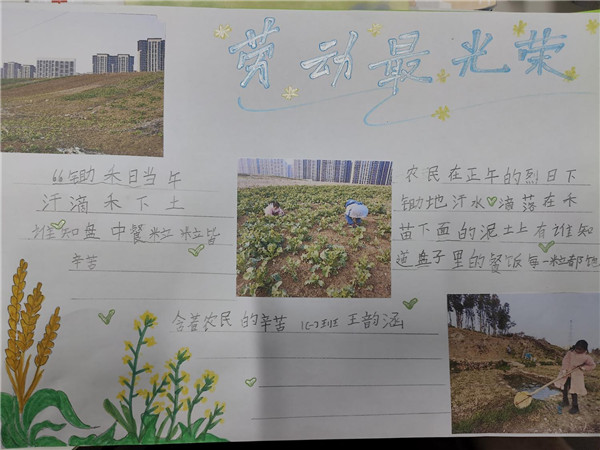 劳动最光荣
“锄禾日当午
汗滴禾下土
谁知盘中餐粒粒皆
辛苦
农民在正午的烈日下
锄地汗水滴落在禾
苗下面的泥土上有谁知
道盘子里的餐饭每一粒都饱
含着农民的辛苦 1(一)班 王韵涵